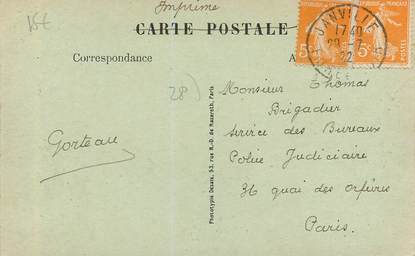 15€
Imprimé
CARTE POSTALE
Correspondance
A
JANVILLE
17 40
5c
5c
28)
Monsieur Thomas
Brigadier
service des Bureaux
Police Judiciaire
36 quai des orfèvres
Paris.
Gorteau
Phototypie Desaix, 53, rue N.-D. de Nazareth, Paris